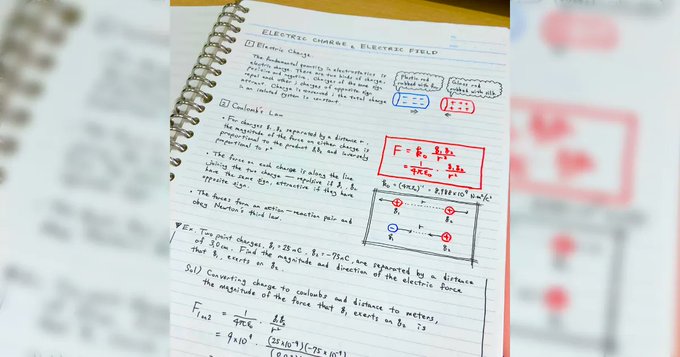 ELECTRIC CHARGE & ELECTRIC FIELD
1 Electric Charge.
The fundamental quantity in electrostatics is
electric charge. There are two kinds of charge,
positive and negative. Charges of the same sign
repel each other; charges of opposite sign
attract. Charge is conserved; the total charge
in an isolated system is constant.
Plastic rod
rubbed with fur
Glass rod
rubbed with silk
2 Coulomb's Law
• For charges q₁, q₂ separated by a distance r,
the magnitude of the force on either charge is
proportional to the product q₁q₂ and inversely
proportional to r².
• The force on each charge is along the line
joining the two charge — repulsive if q₁, q₂
have the same sign, attractive if they have
opposite sign.
• The forces form an action–reaction pair and
obey Newton's third law.
F = k₀ q₁q₂/r²
= 1/4πε₀ · q₁q₂/r²
k₀ = (4πε₀)⁻¹ = 8.988×10⁹ N·m²/C²
+ r +
q₁ q₂
− r +
q₁ q₂
▼Ex. Two point charges, q₁ = 25nC, q₂ = −75nC, are separated by a distance
of 3.0cm. Find the magnitude and direction of the electric force
that q₁ exerts on q₂.
Sol) Converting charge to coulombs and distance to meters,
the magnitude of the force that q₁ exerts on q₂ is
F₁ₒₙ₂ = 1/4πε₀ · q₁q₂/r²
= 9×10⁹ · (25×10⁻⁹)(−75×10⁻⁹)